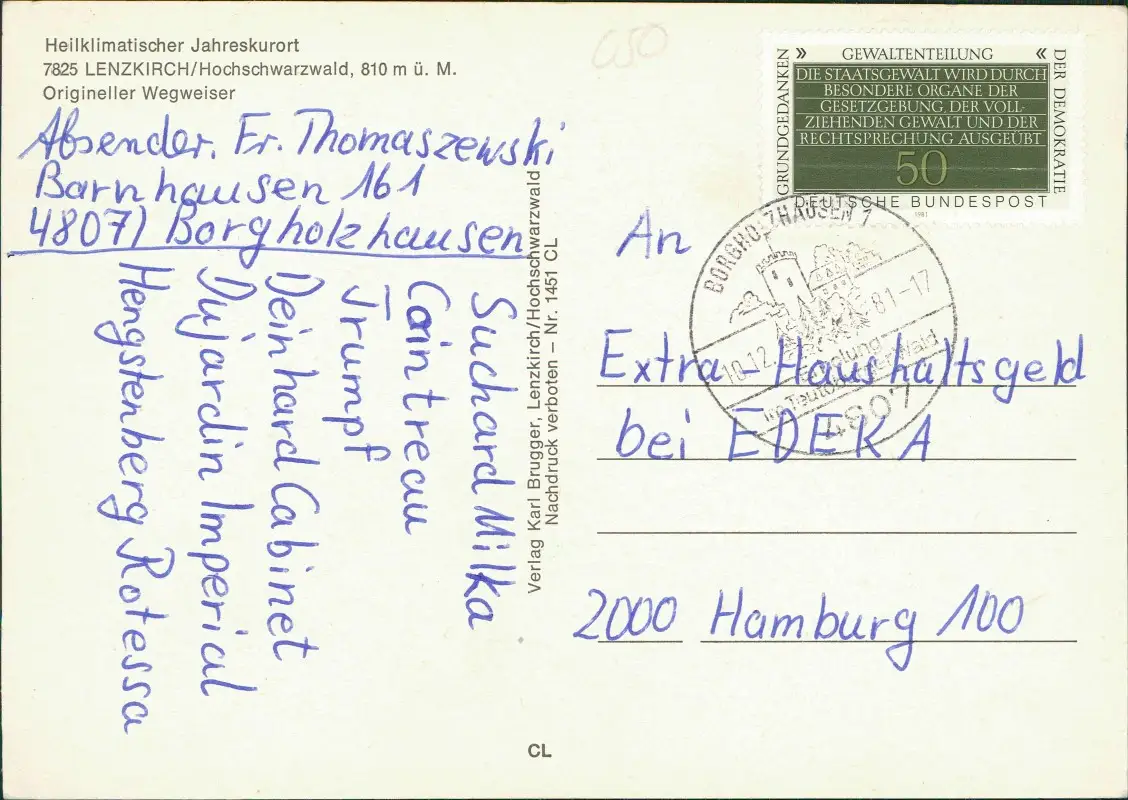 Heilklimatischer Jahreskurort
7825 LENZKIRCH/Hochschwarzwald, 810 m ü. M.
Origineller Wegweiser
Absender. Fr. Thomaszewski
Barnhausen 161
4807) Borgholzhausen
Suchard Milka
Cointreau
Trumpf
Deinhard Cabinet
Dujardin Imperial
Hengstenberg Rotessa
Verlag Karl Brugger, Lenzkirch/Hochschwarzwald
Nachdruck verboten – Nr. 1451 CL
CL
650
GRUNDGEDANKEN
» GEWALTENTEILUNG «
DER DEMOKRATIE
DIE STAATSGEWALT WIRD DURCH
BESONDERE ORGANE DER
GESETZGEBUNG, DER VOLL-
ZIEHENDEN GEWALT UND DER
RECHTSPRECHUNG AUSGEÜBT
50
DEUTSCHE BUNDESPOST
1981
BORGHOLZHAUSEN 1
10.12.81-17
Erholung
im Teutoburger Wald
4807
An
Extra-Haushaltsgeld
bei EDEKA
2000 Hamburg 100